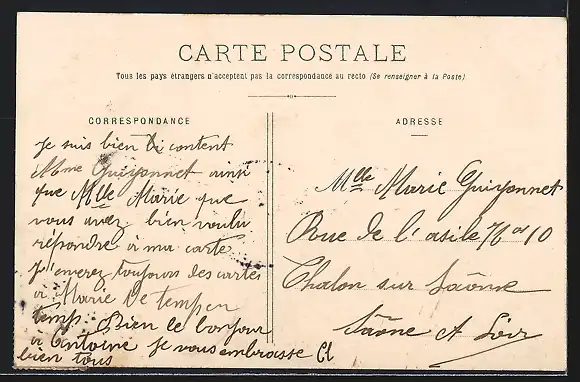 CARTE POSTALE
Tous les pays étrangers n'acceptent pas la correspondance au recto (Se renseigner à la Poste)
CORRESPONDANCE
ADRESSE
Je suis bien content
Mme Guiyonnet ainsi
que Mlle Marie que
vous avez bien voulu
répondre à ma carte
J'enverez toujours des cartes
à Marie de temp en
temp. Bien le bonjour
à Antoine Je vous embrasse
bien tous
Mlle Marie Guiyonnet
Rue de l'asile 10
Chalon sur Saône
Saône et Loir